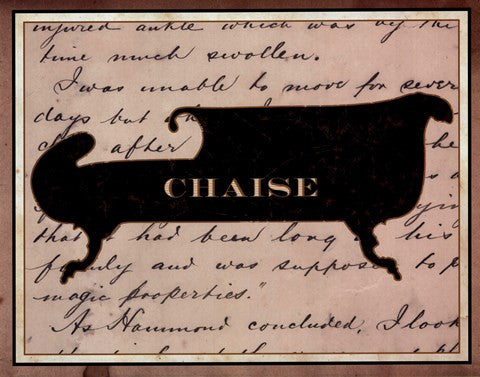 injured ankle which was by
time much swollen.
I was unable to move for sever
days but
after
CHAISE
had been long his
family and was suppose to p
magic properties."
As Hammond concluded, I look